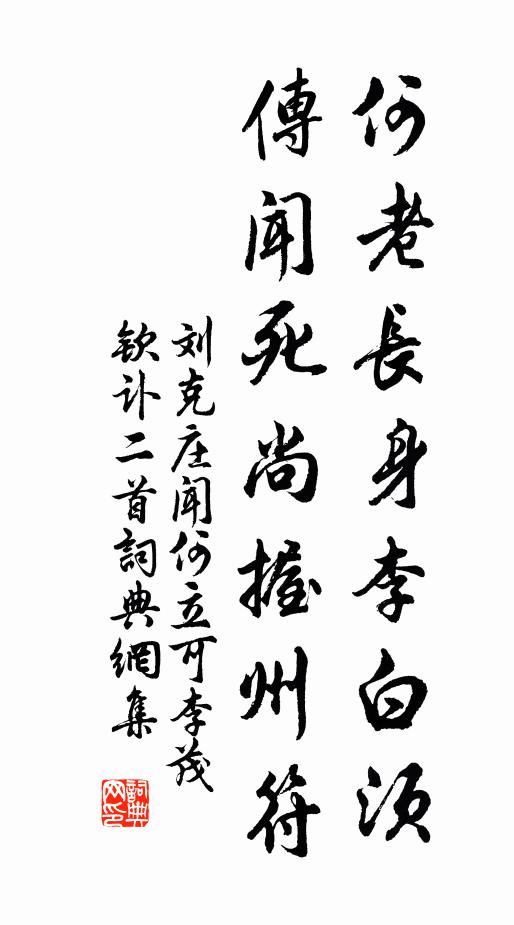 何老長身李白須
傳聞死尚握州符
刘克庄聞何立可李茂
欽讣二首詞典網集
詞典网印